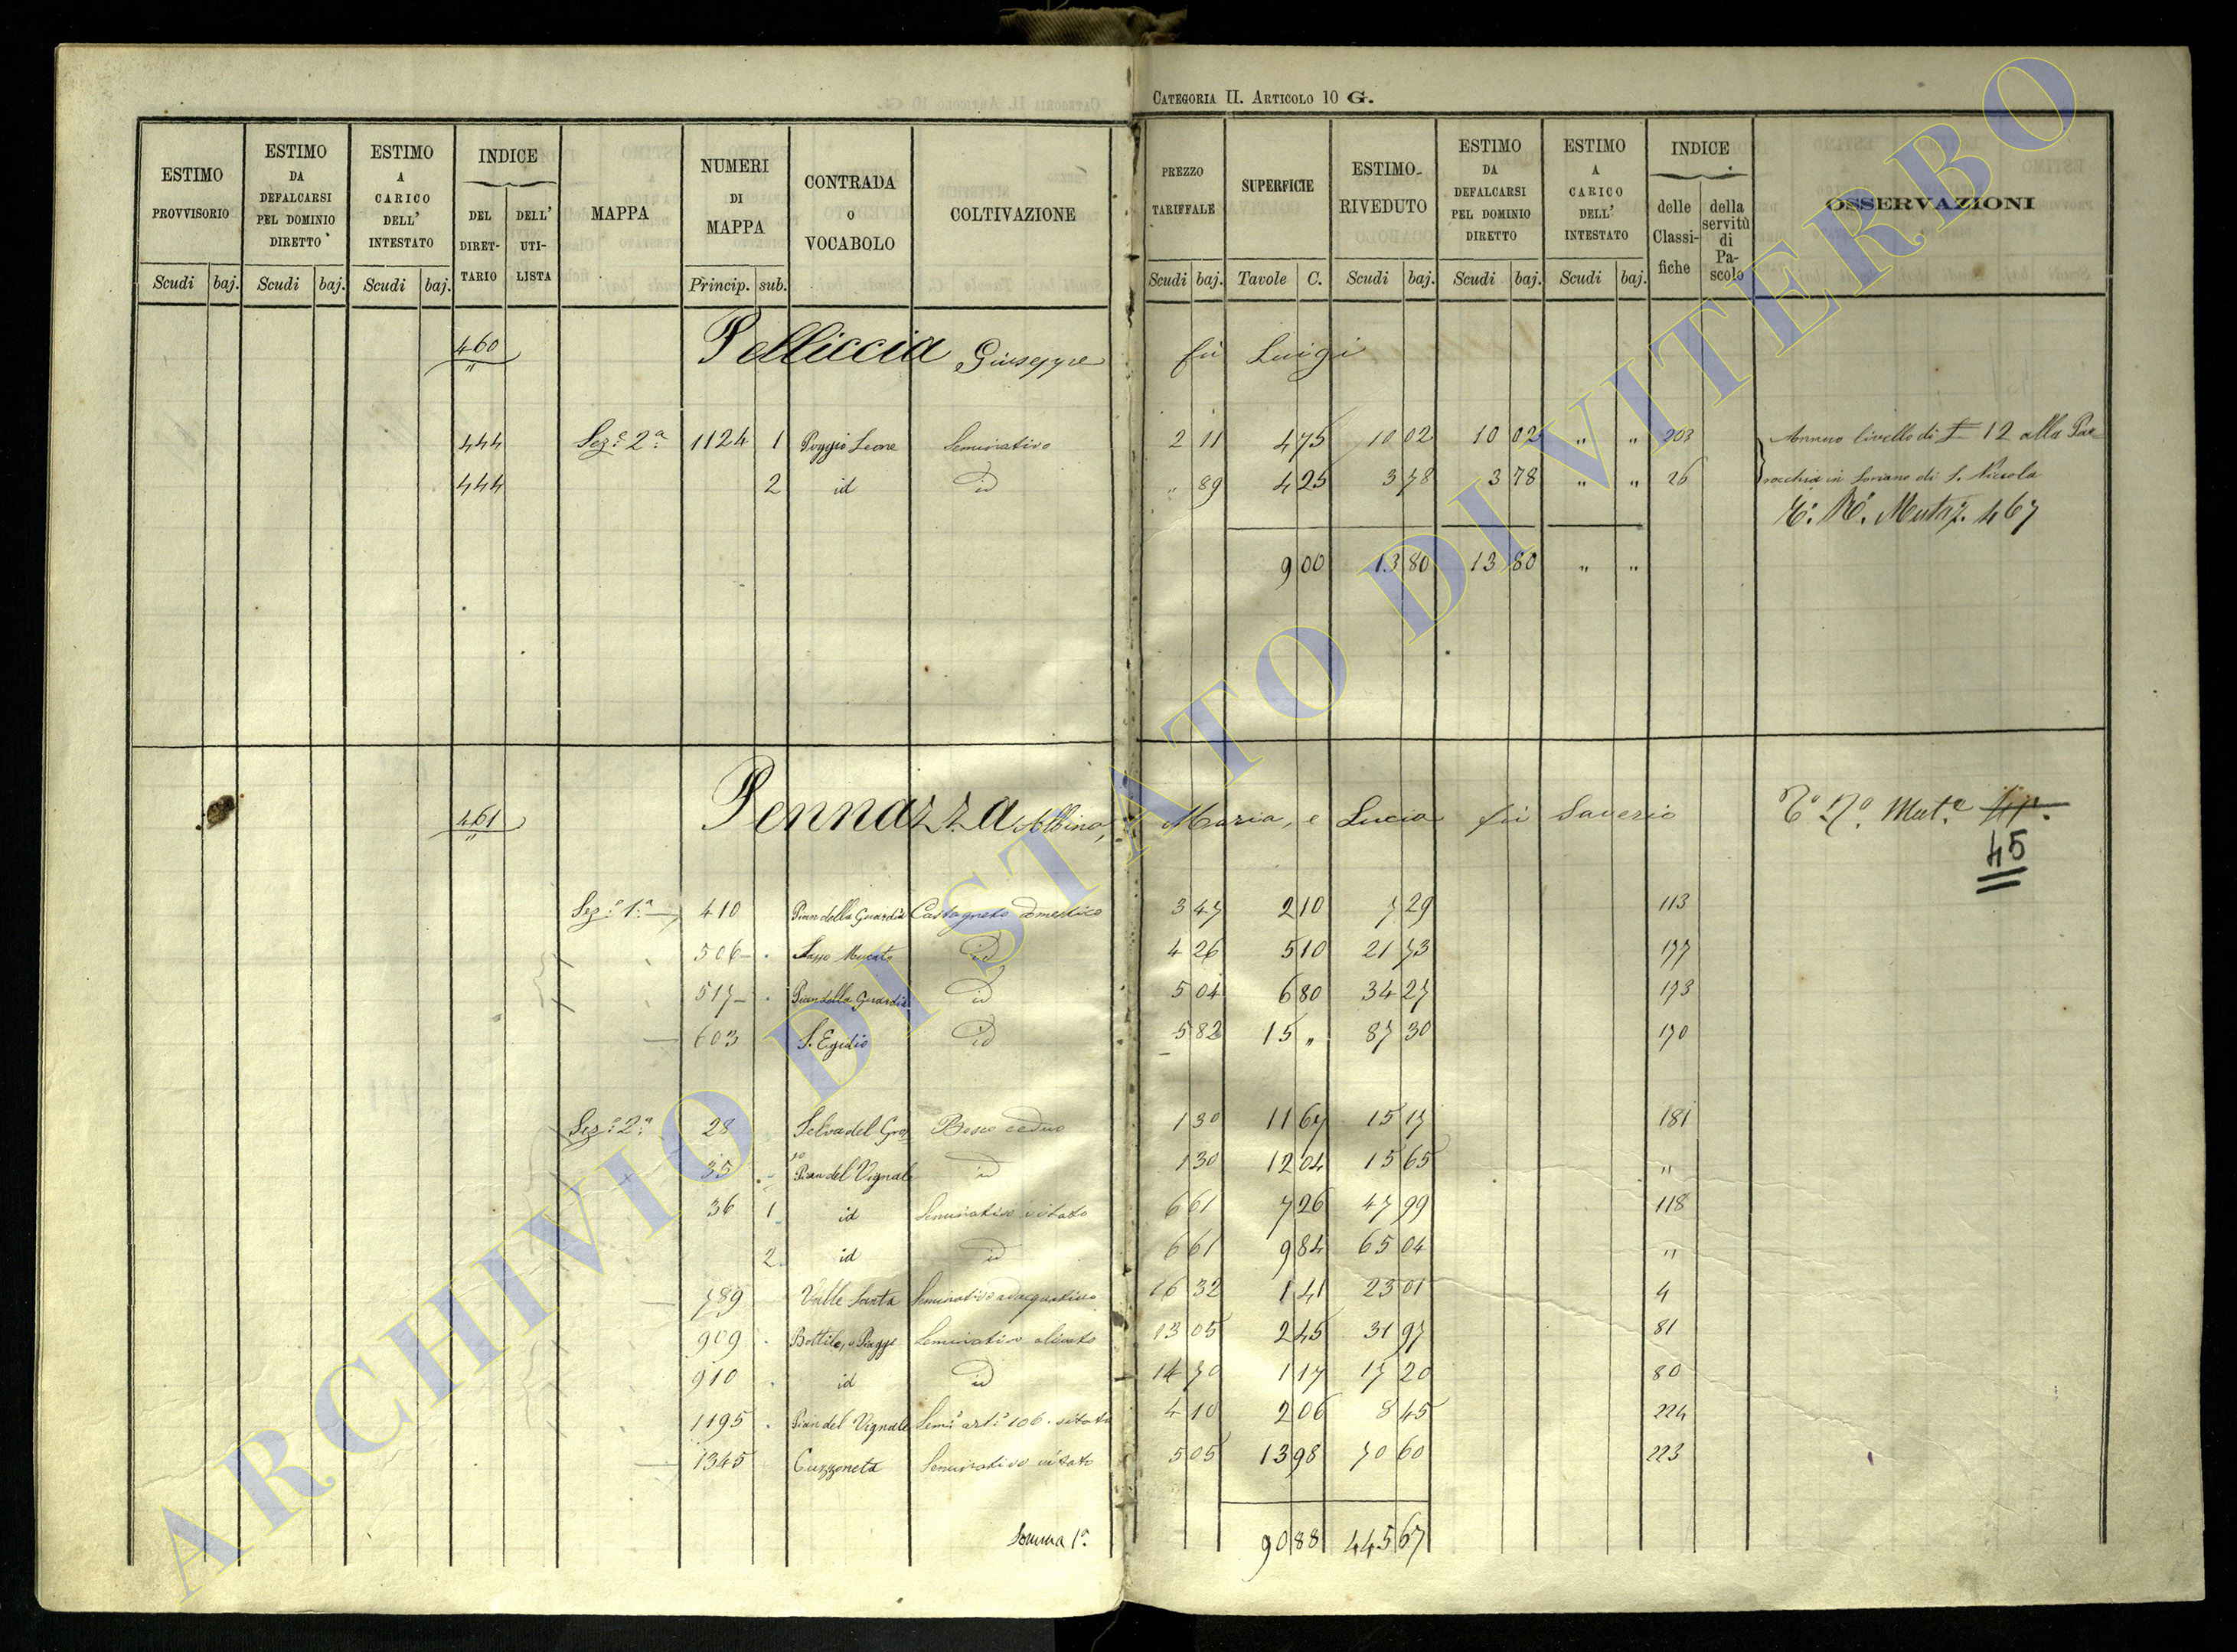 CATEGORIA II. ARTICOLO 10 G.
ESTIMO PROVVISORIO Scudi baj.
ESTIMO DA DEFALCARSI PEL DOMINIO DIRETTO Scudi baj.
ESTIMO A CARICO DELL' INTESTATO Scudi baj.
INDICE DEL DIRET-TARIO DELL' UTI-LISTA
MAPPA
NUMERI DI MAPPA Princip. sub.
CONTRADA O VOCABOLO
COLTIVAZIONE
PREZZO TARIFFALE Scudi baj.
SUPERFICIE Tavole C.
ESTIMO RIVEDUTO Scudi baj.
ESTIMO DA DEFALCARSI PEL DOMINIO DIRETTO Scudi baj.
ESTIMO A CARICO DELL' INTESTATO Scudi baj.
INDICE delle Classi-fiche della servitù di Pa-scolo
OSSERVAZIONI
460 Pelliccia Giuseppe fù Luigi
444 Sez.e 2a 1124 1 Poggio Leone Seminativo 2 11 4 75 10 02 10 02 " " 203 Annuo livello di £ 12 alla Par
444 2 id id " 89 4 25 3 78 3 78 " " 26 rocchia in Soriano di S. Nicola
Mutaz. 467
9 00 13 80 13 80 " "
461 Pennazza Albino, Maria, e Lucia fù Saverio Mut.e
45
Sez.e 1.a 410 Pian della Guardia Castagneto domestico 3 47 2 10 7 29 113
506 Sasso id 4 26 5 10 21 73 177
517 Pian della Guardia id 5 04 6 80 34 27 173
603 S. Egidio id 5 82 15 " 87 30 170
Sez.e 2.a 28 Selva del Gros Bosco ceduo 1 30 11 67 15 17 181
so
35 Pian del Vignale id 1 30 12 04 15 65 "
36 1 id Seminativo vitato 6 61 7 26 47 99 118
2 id id 6 61 9 84 65 04 "
789 Valle Santa Seminativo adacquativo 16 32 1 41 23 01 4
909 Seminativo olivato 13 05 2 45 31 97 81
910 id id 14 70 1 17 17 20 80
1195 Pian del Vignale vitato 4 10 2 06 8 45 224
1345 Cuzzoneta Seminativo vitato 5 05 13 98 70 60 223
Somma 1a 90 88 445 67
ARCHIVIO DI STATO DI VITERBO